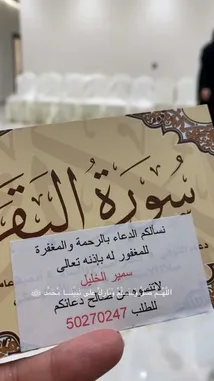 سورة البقرة
نسألكم الدعاء بالرحمة والمغفرة
للمغفور له بإذنه تعالى
سمير الخليل
اللهم صل وسلم وبارك على نبينا محمد ﷺ
لاتنسونا من صالح دعائكم
للطلب 50270247